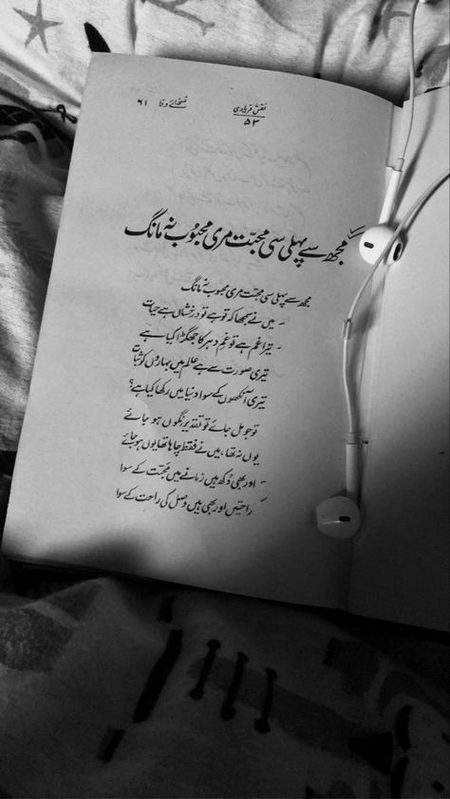 نقش فریادی
۵۳
نسخہ ہائے وفا ۶۱
مجھ سے پہلی سی محبّت مری محبُوب نہ مانگ
مجھ سے پہلی سی محبّت مری محبوب نہ مانگ
میں نے سمجھا کہ تو ہے تو درخشاں ہے حیات
تیرا غم ہے تو غمِ دہر کا جھگڑا کیا ہے
تیری صورت سے ہے عالم میں بہاروں کو ثبات
تیری آنکھوں کے سوا دنیا میں رکھا کیا ہے؟
تو جو مل جائے تو تقدیر نگوں ہو جائے
یوں نہ تھا، میں نے فقط چاہا تھا یوں ہو جائے
اور بھی دُکھ ہیں زمانے میں محبّت کے سوا
راحتیں اور بھی ہیں وصل کی راحت کے سوا